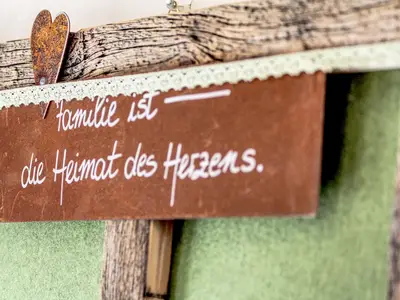 Familie ist
die Heimat des Herzens.